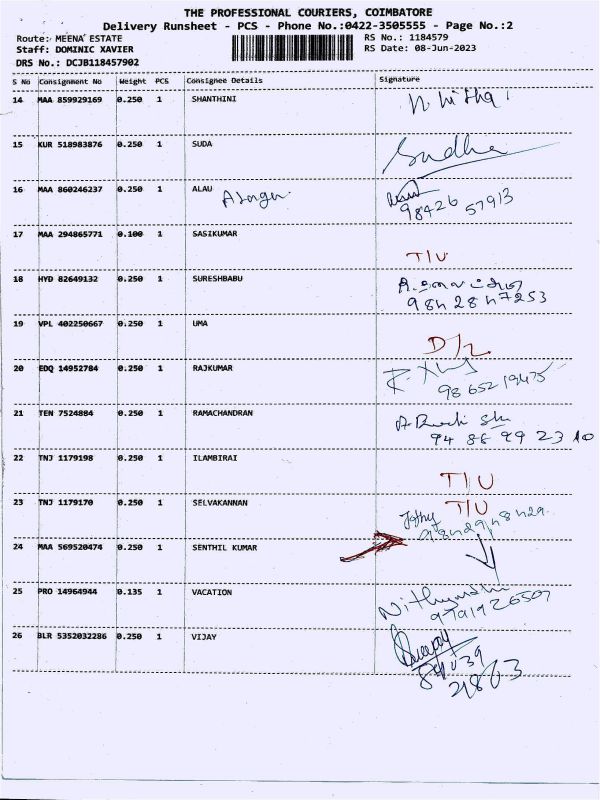 THE PROFESSIONAL COURIERS, COIMBATORE
Delivery Runsheet - PCS - Phone No.:0422-3505555 - Page No.:2
Route: MEENA ESTATE
RS No.: 1184579
Staff: DOMINIC XAVIER
RS Date: 08-Jun-2023
DRS No.: DCJB118457902
S No Consignment No Weight PCS Consignee Details Signature
14 MAA 859929169 0.250 1 SHANTHINI
15 KUR 518983876 0.250 1 SUDA Sudha
16 MAA 860246237 0.250 1 ALAU
98426 57913
17 MAA 294865771 0.100 1 SASIKUMAR
T/U
18 HYD 82649132 0.250 1 SURESHBABU
19 VPL 402250667 0.250 1 UMA
D/L
20 EDQ 14952784 0.250 1 RAJKUMAR
21 TEN 7524884 0.250 1 RAMACHANDRAN
94 86 99 23 10
22 TNJ 1179198 0.250 1 ILAMBIRAI
T/U
23 TNJ 1179170 0.250 1 SELVAKANNAN T/U
24 MAA 569520474 0.250 1 SENTHIL KUMAR
25 PRO 14964944 0.135 1 VACATION
9791926507
26 BLR 5352032286 0.250 1 VIJAY